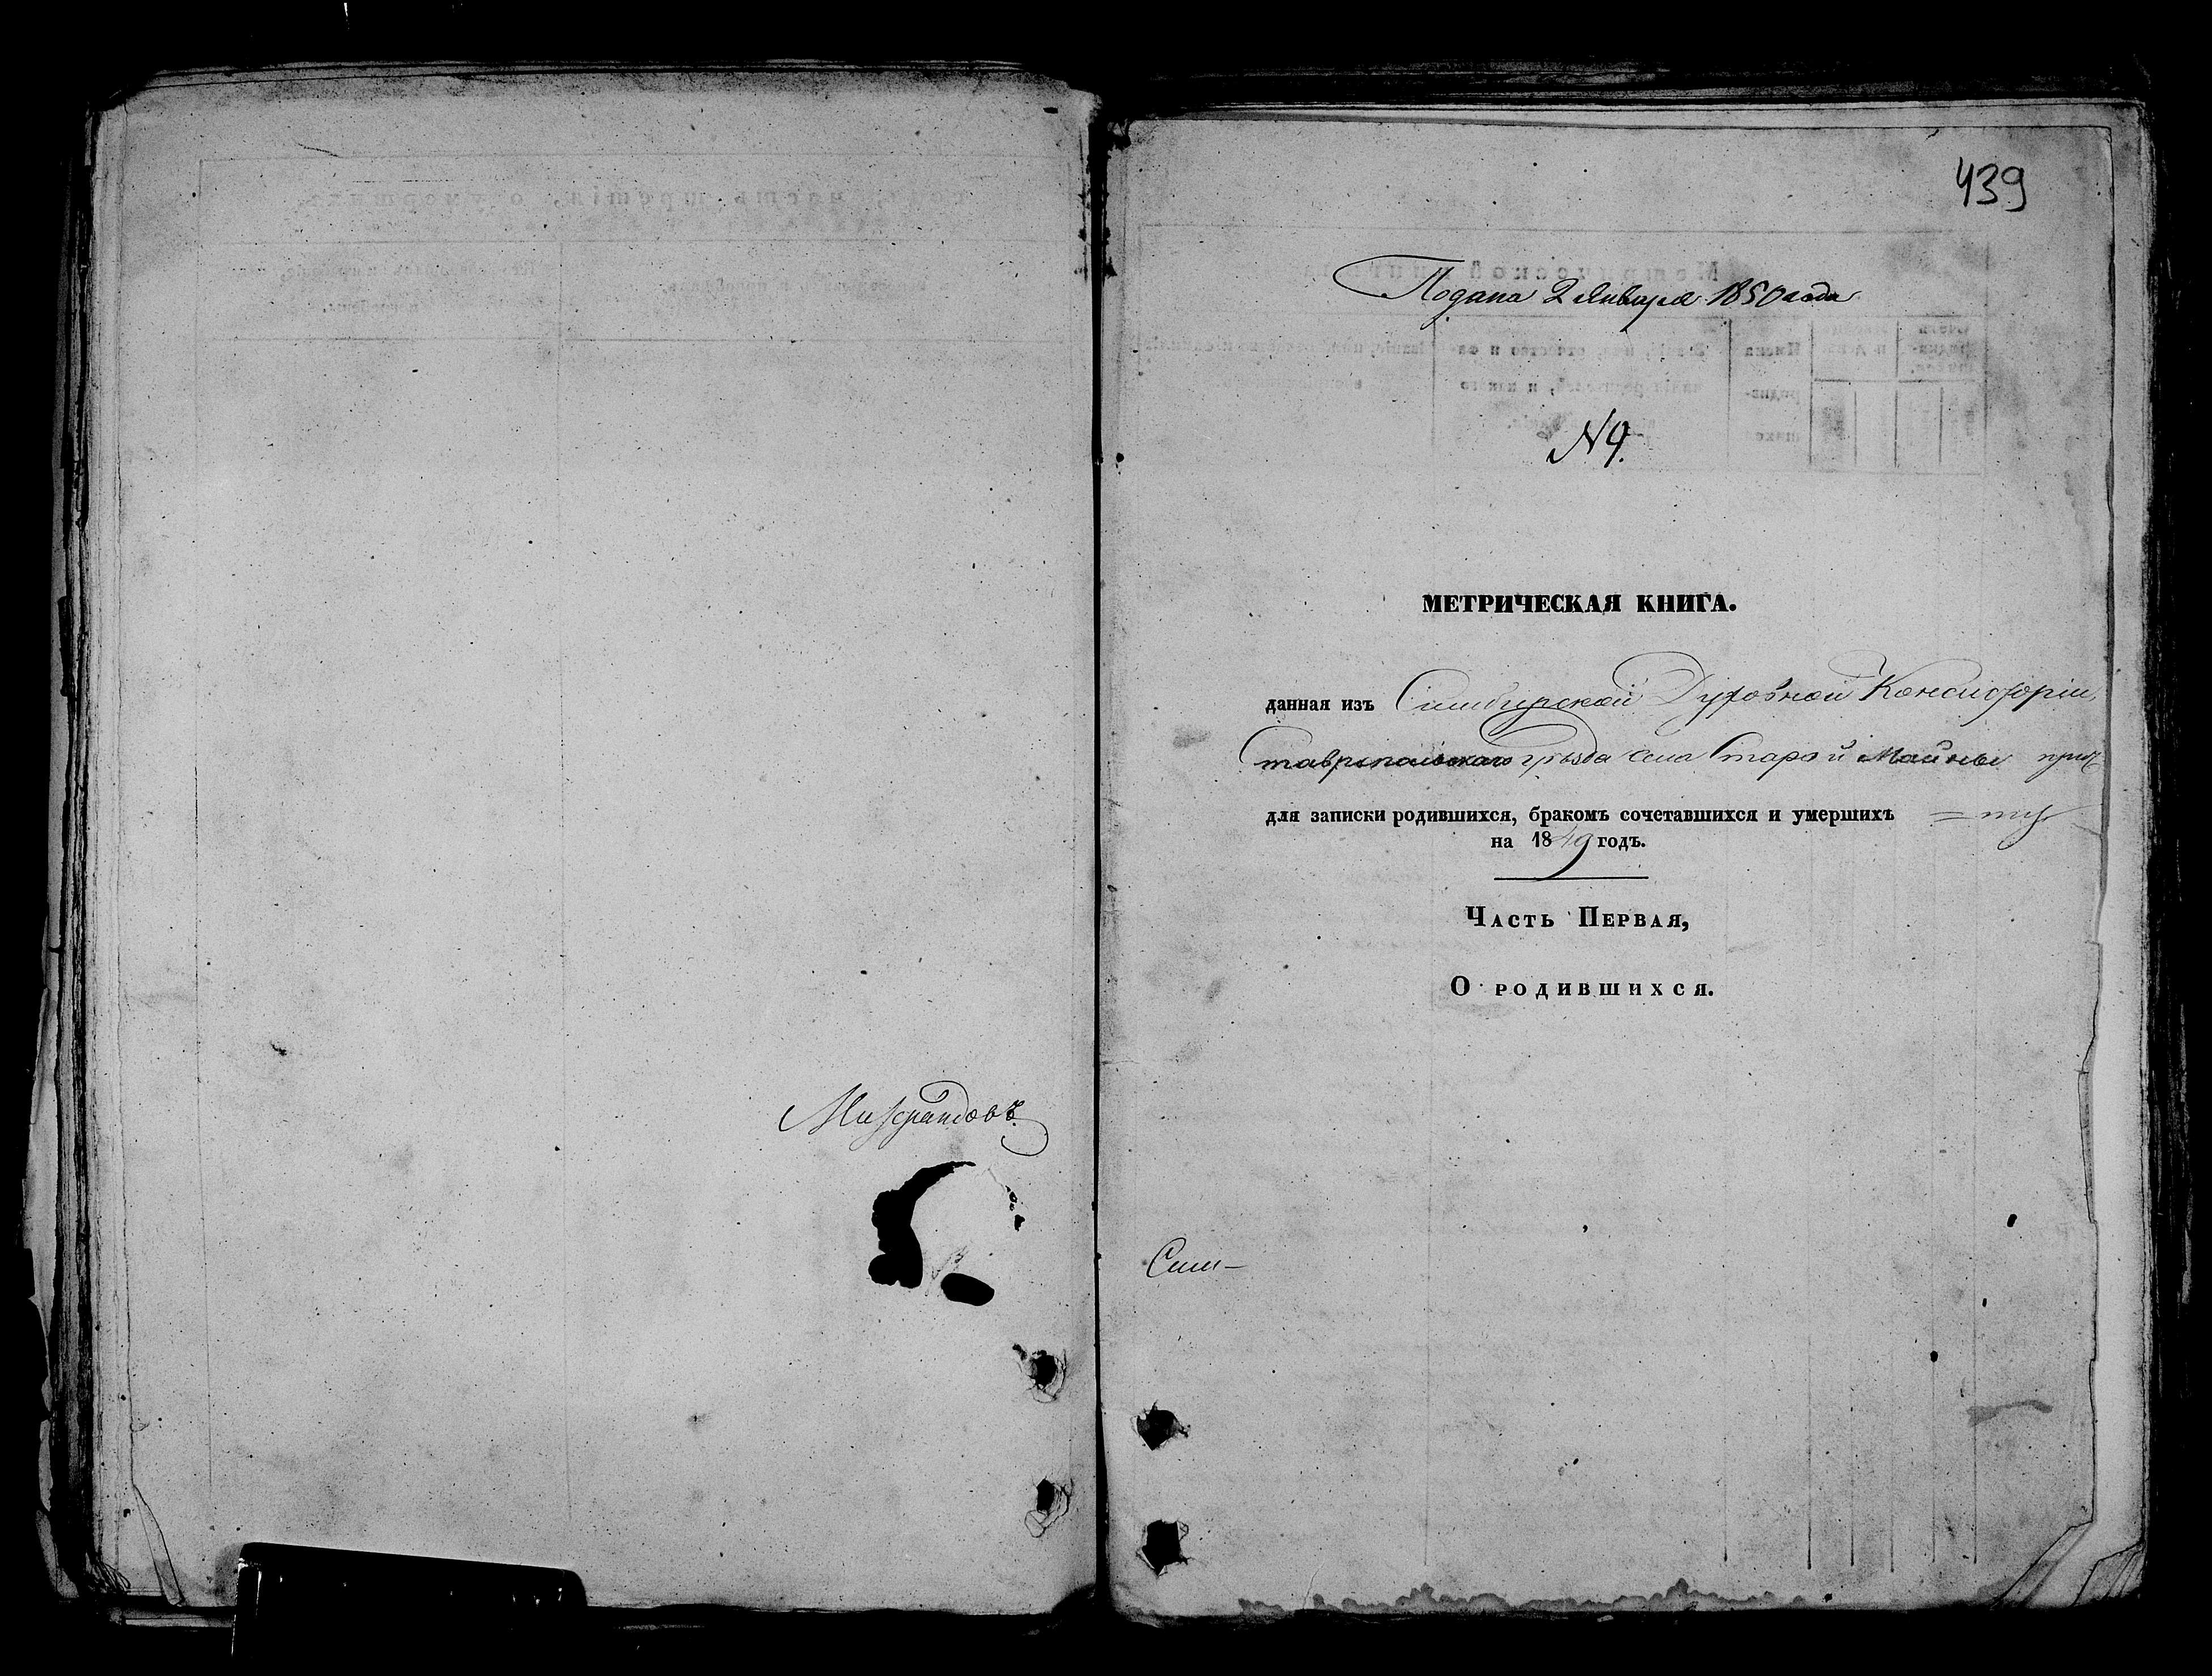 Миѳрандовъ
439
Подана 2 Января 1850 года
N 9.
МЕТРИЧЕСКАЯ КНИГА.
данная изъ Симбирской Духовной Консисторіи,
Ставропольскаго уѣзда села Старой Майны прич
для записки родившихся, бракомъ сочетавшихся и умершихъ =ту
на 1849 годъ.
Часть Первая,
О родившихся.
Сим-